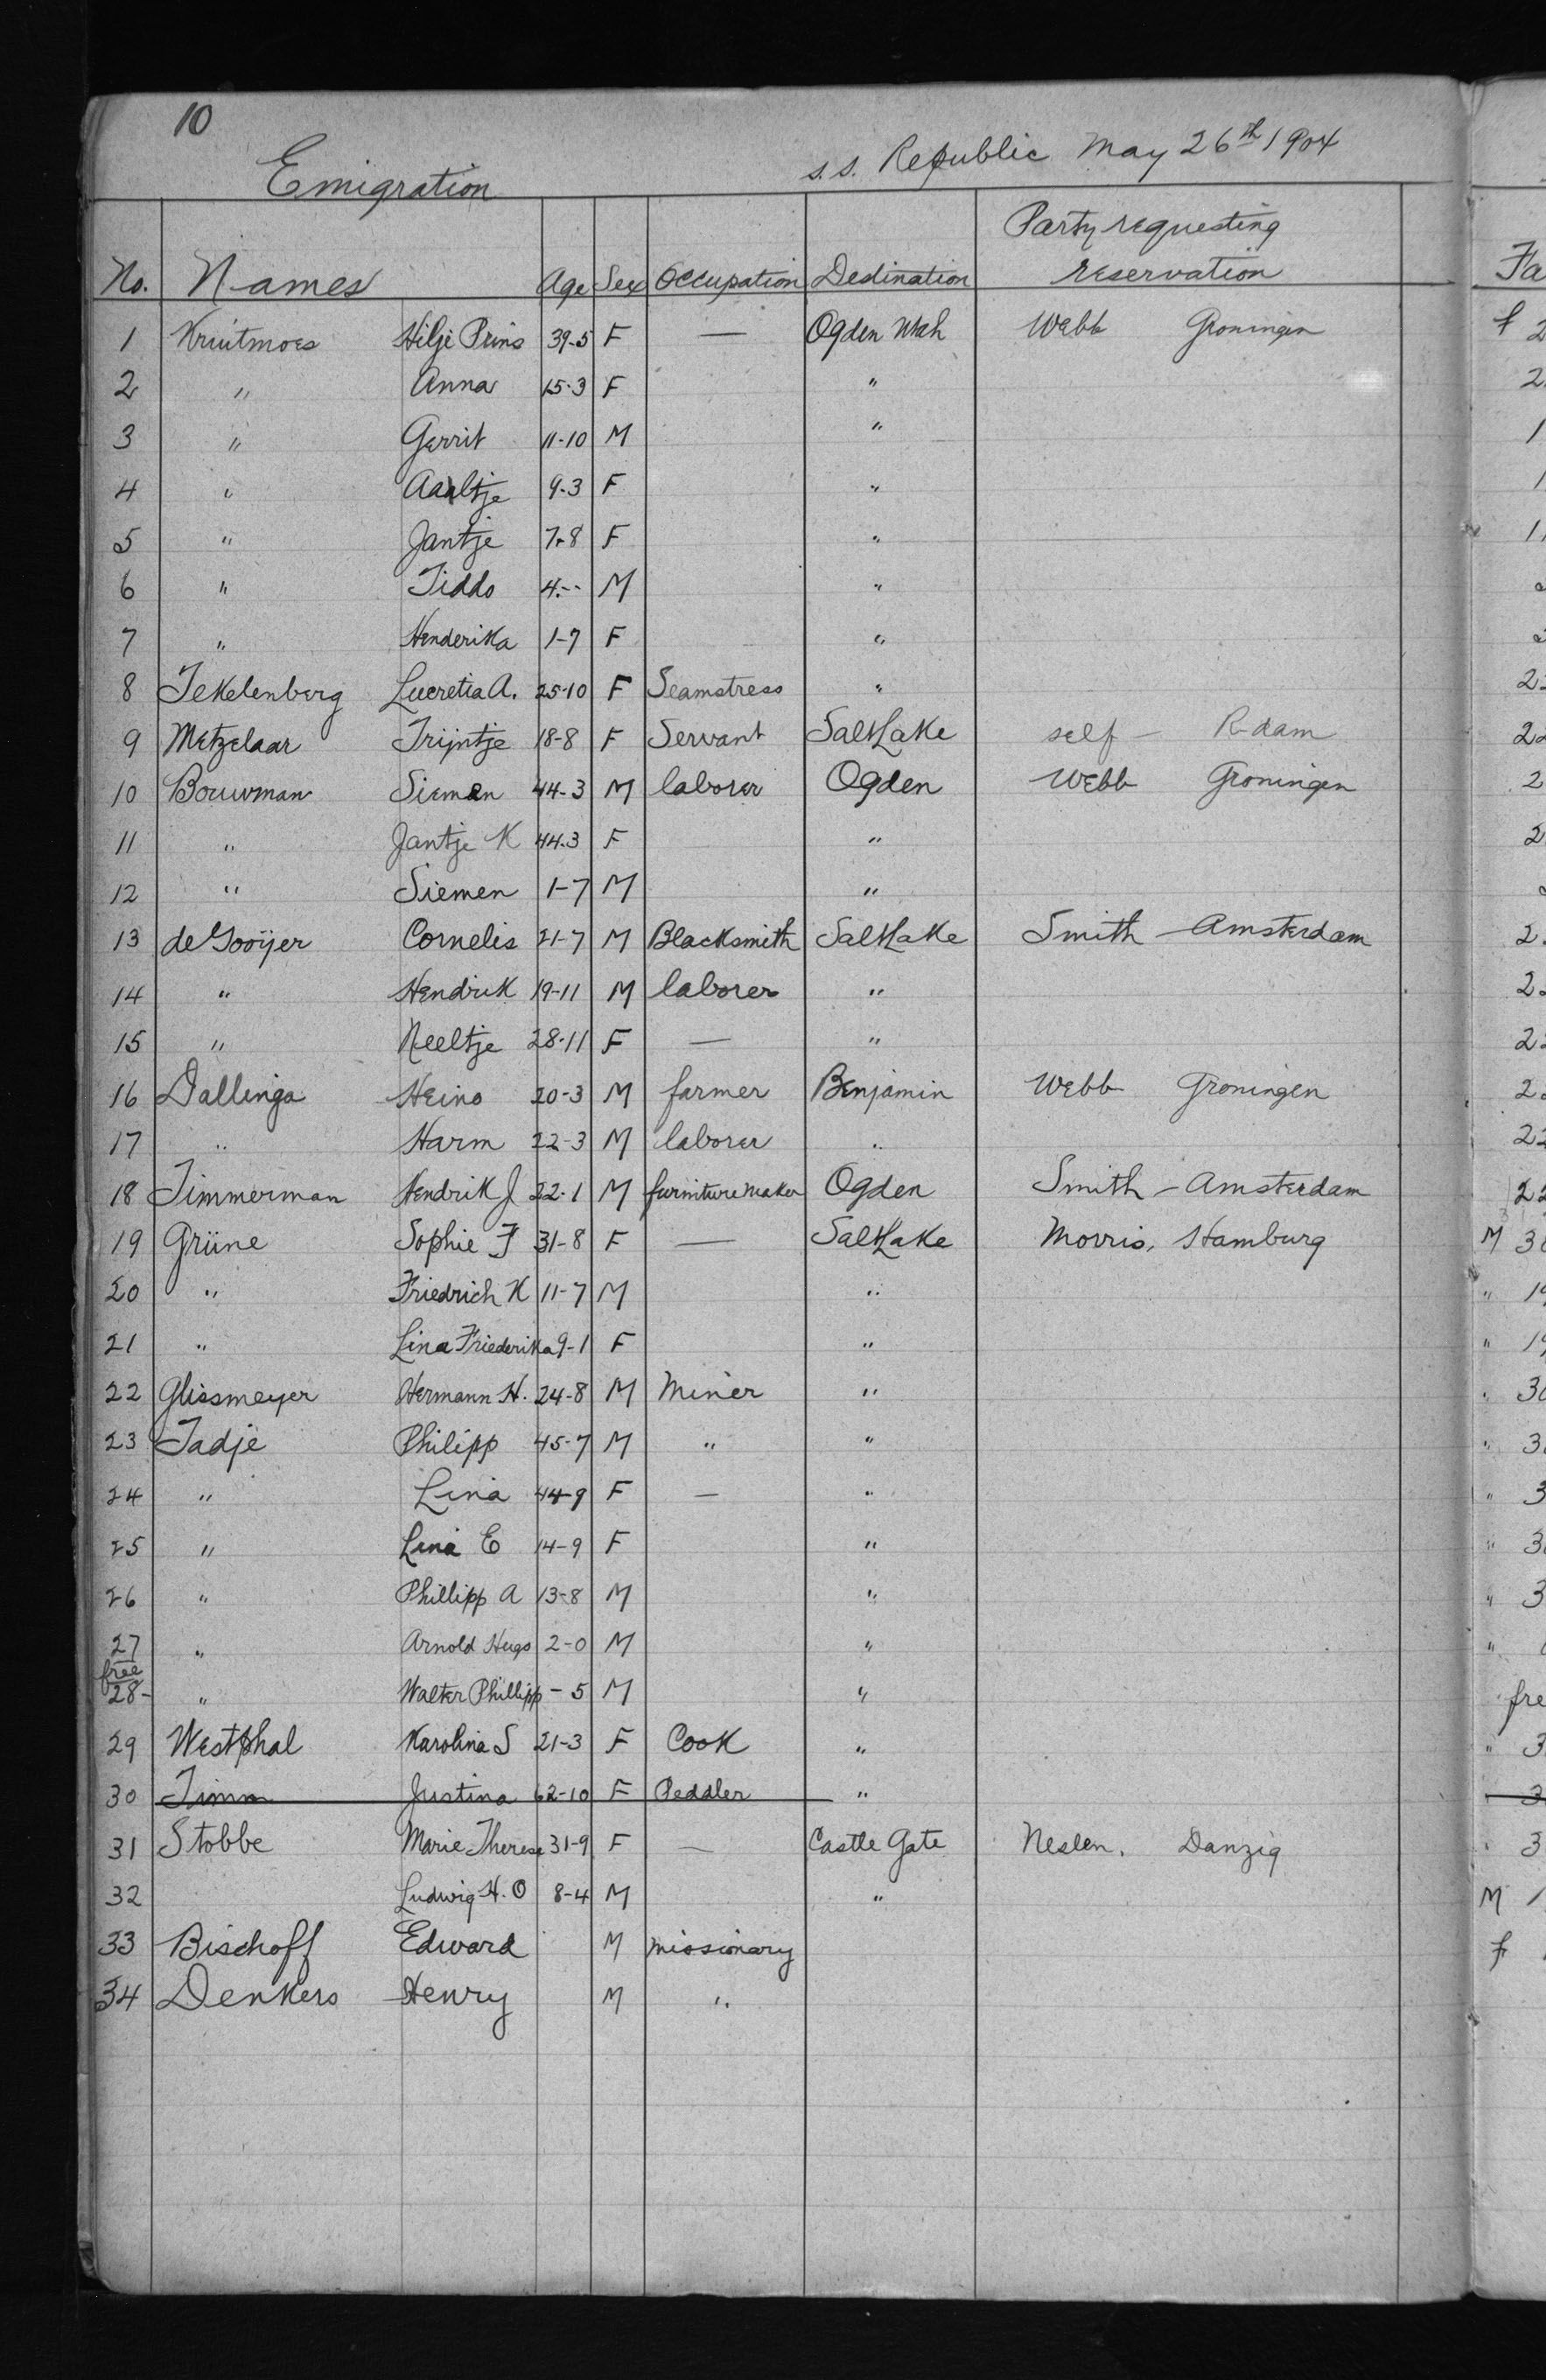 10
Emigration s.s. Republic May 26th 1904
No. Names Age Sex Occupation Destination Party requesting reservation
1 Kruitmoes Hilje Prins 39-5 F — Ogden Utah Webb Groningen
2 " Anna 15-3 F "
3 " Gerrit 11-10 M "
4 " Aaltje 9-3 F "
5 " Jantje 7-8 F "
6 " Tiddo 4-- M "
7 " Henderika 1-7 F "
8 Tekelenburg Lucretia A. 25-10 F Seamstress "
9 Metzelaar Trijntje 18-8 F Servant Salt Lake self — R-dam
10 Bouwman Siemen 44-3 M laborer Ogden Webb Groningen
11 " Jantje K 44-3 F "
12 " Siemen 1-7 M "
13 de Gooijer Cornelis 21-7 M Blacksmith Salt Lake Smith — Amsterdam
14 " Hendrik 19-11 M laborer "
15 " Neeltje 28-11 F — "
16 Dallinga Heino 20-3 M farmer Benjamin Webb Groningen
17 " Harm 22-3 M laborer "
18 Timmerman Hendrik J 22-1 M furniture maker Ogden Smith — Amsterdam
19 Grüne Sophie F 31-8 F — Salt Lake Morris, Hamburg
20 " Friedrich K 11-7 M "
21 " Lina Friederika 9-1 F "
22 Glissmeyer Hermann H. 24-8 M Miner "
23 Tadje Philipp 45-7 M " "
24 " Lina 44-9 F — "
25 " Lina E 14-9 F "
26 " Phillipp A 13-8 M "
27 " Arnold Hugo 2-0 M "
free
28- " Walter Phillipp - 5 M "
29 Westphal Karolina S 21-3 F Cook "
30 Timm Justina 62-10 F Peddler "
31 Stobbe Marie Therese 31-9 F — Castle Gate Neslen, Danzig
32 Ludwig H. O 8-4 M "
33 Bischoff Edward M missionary
34 Denkers Henry M "